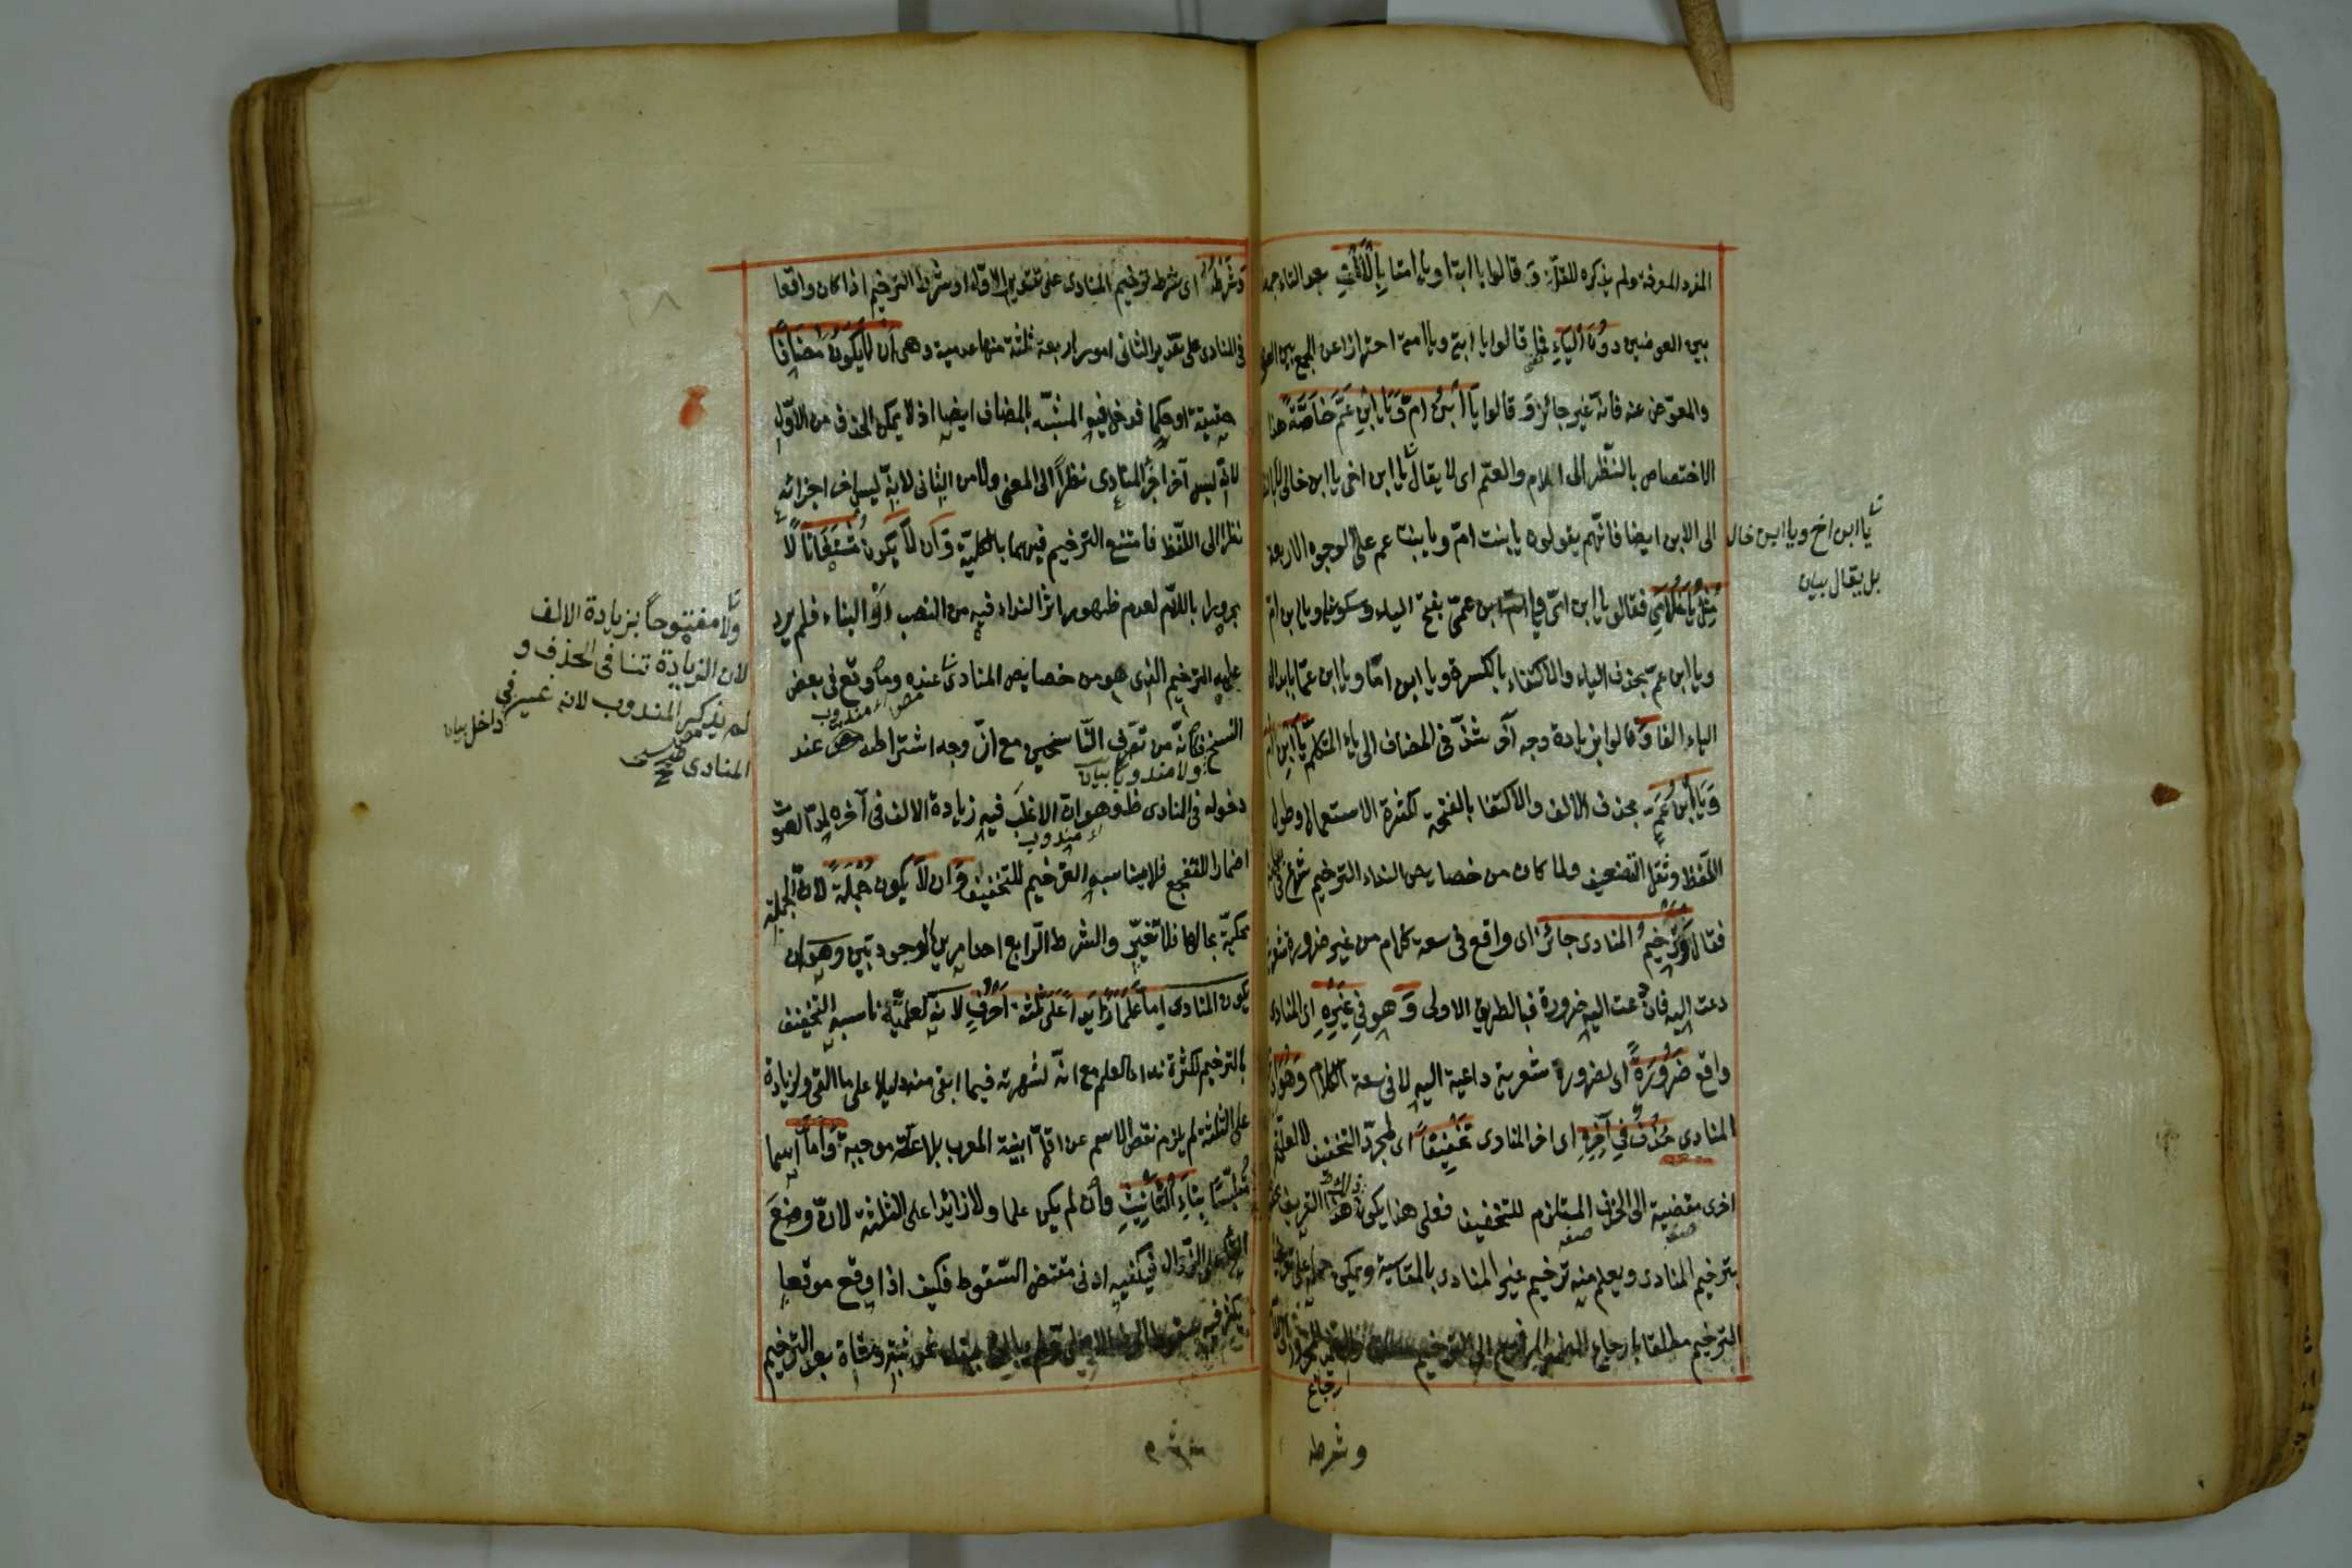 المفرد المعرفة ولم يذكره للقلة وَ قالوا يا ابتا ويا امتا بِالْاَلِفِ بعد التاء جمعا
بين العوضين دُونَ الْيَاءِ فما قالوا يا ابتي ويا امتي احترازا عن الجمع بين العوض
والمعوّض عنه فانه غير جائز وَ قالوا يَا ابْنَ امّ وَ يَا ابْنَ عَمّ خَاصَّةً هذا
الاختصاص بالنّظر الى الام والعمّ اى لا يقال يا ابن اخى يا ابن خالى لا بالنظر
الى الابن ايضا فانّهم يقولون يا بنت امّ ويا بنت عم على الوجوه الاربعة
مِثْلُ يَا غُلَامِي فقالوا يا ابن امّى ويا ابن عمىّ بفتح الياء وسكونها ويا ابن ام
ويا ابن عمّ بحذف الياء والاكتفاء بالكسرة ويا ابن امّا ويا ابن عمّا بابدال
الياء الفا وَ قالوا بزيادة وجه آخر شذّ فى المضاف الى ياء المتكلم يَا ابْنَ امَّ
وَ يَا ابْنَ عَمَّ بحذف الالف والاكتفا بالفتحة لكثرة الاستعمال وطول
اللّفظ وثقل التضعيف ولما كان من خصايص النداء الترخيم شرع فى بيانه
فقال وَ تَرْخِيمُ المنادى جائز اى واقع فى سعة كلام من غير ضرورة شعرية
دعت اليه فان دعت اليه ضرورة فبالطريق الاولى وَ هو فِي غَيْرِهِ اى المنادى
واقع ضَرُورَةً اى لضرورة شعرية داعية اليه لا فى سعة الكلام وَهُوَ اى
المنادى حَذْفٌ فِي آخِرِهِ اى اخر المنادى تَخْفِيفًا اى لمجرّد التخفيف لا لعلة
اخرى مفضية الى الحذف المستلزم للتخفيف فعلى هذا يكون هذا التعريف
بترخيم المنادى ويعلم منه ترخيم غير المنادى بالمقايسة ويمكن حمله على تعريف
الترخيم مطلقا بارجاع الضمير المرفوع الى الترخيم
ارجاع
وشرطه
يا ابن اخ ويا ابن خال
بل يقال بيان
وَ شَرْطُهُ اى شرط ترخيم المنادى على تقدير الاول او شرط الترخيم اذا كان واقعا
فى المنادى على تقدير الثانى امور اربعة ثلثة منها عدمية وهى اَنْ لَا يَكُونَ مُضَافًا
حقيقة او حكما فدخل فيه المشبّه بالمضاف ايضا اذ لا يمكن الحذف من الاوّل
لانّه ليس آخر اجزاء المنادى نظراً الى المعنى ولا من الثانى لانّه ليس آخر اجزائه
نظرا الى اللّفظ فامتنع الترخيم فيهما بالكليّة وَ اَن لَا يَكون مُسْتَغَاثًا لَا
مجرورا باللّام لعدم ظهور اثر النداء فيه من النصب او البناء فلم يرد
عليه الترخيم الذى هو من خصايص المنادى عنده وما وقع فى بعض
النسخ فكانّه من تصرّف النّاسخين مع انّ وجه اشتراطه عند
ولا مندوبا بيان
دخوله فى المنادى ظ وهو ان الاغلب فيه زيادة الالف فى آخره لمدّ الصوت
اضمارا للتفجع فلا يناسبه الترخيم للتخفيف وَ اَن لَا يَكون جُمْلَةً لانّ الجملة
محكيّة بحالها فلا تغيّر والشرط الرّابع احد امرين وجوديين وهو ان
يكون المنادى اِمّا عَلَمًا زَايِدًا عَلَى ثَلثَة اَحْرُفٍ لانّه لعلميّته ناسبه التخفيف
بالترخيم لكثرة نداء العلم مع انّه لشهرته فيما ابقى منه دليلا على ما القى ولزيادة
على الثلثة لم يلزم نقص الاسم عن اقلّ ابنية المعرب بلا علّة موجبة وَ اِمّا اسما
مُلْتَبِسًا بِتَاءِ التَّأْنِيثِ وان لم يكن علما ولا زائدا على الثلثة لانّ وضع
التاء على الزّوال فيكفيه ادنى مقتض السّقوط فكيف اذا وقع موقعا
يكثر فيه سقوط الحرف الاصلى نحو ثبة وشاة بعد الترخيم
ولا مفتوحاً بزيادة الالف
لان الزيادة تنافى الحذف و
لم يذكر المندوب لانه غير
داخل فى بيان
المنادى